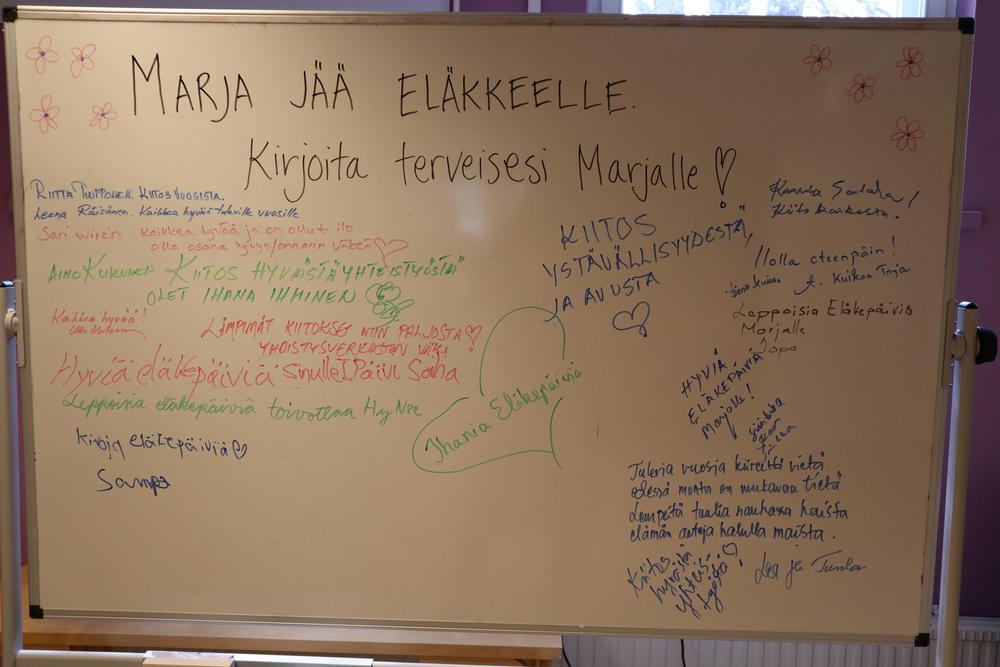 MARJA JÄÄ ELÄKKEELLE.
Kirjoita terveisesi Marjalle
RIITTA KIITOS VUOSISTA.
Leena Räisänen. Kaikkea hyvää tuleville vuosille
Sari Wirén Kaikkea hyvää ja on ollut ilo
olla osana
AINO KUKUNEN KIITOS HYVÄSTÄ YHTEISTYÖSTÄ
OLET IHANA IHMINEN
Kaikkea hyvää!
LÄMPIMÄT KIITOKSET NIIN PALJOSTA
YHDISTYSVERKOSTON VÄKI
Hyviä eläkepäiviä Sinulle! Päivi Saha
Leppoisia eläkepäiviä toivottaa
Kivoja eläkepäiviä
Sampo
Ihania Eläkepäiviä
KIITOS
YSTÄVÄLLISYYDESTÄ,
JA AVUSTA
Kiitos kaikesta.
Ilolla eteenpäin!
T. Kuikan Tarja
Leppoisia Eläkepäiviä
Marjalle
HYVIÄ
ELÄKEPÄIVIÄ
Marjalle!
Tulevia vuosia kiireittä vietä
edessä monta on mukavaa tietä
Lempeitä tuulia nauhassa haista
elämän antoja halulla maista.
Kiitos
hyvästä
yhteis
työstä
Lea ja